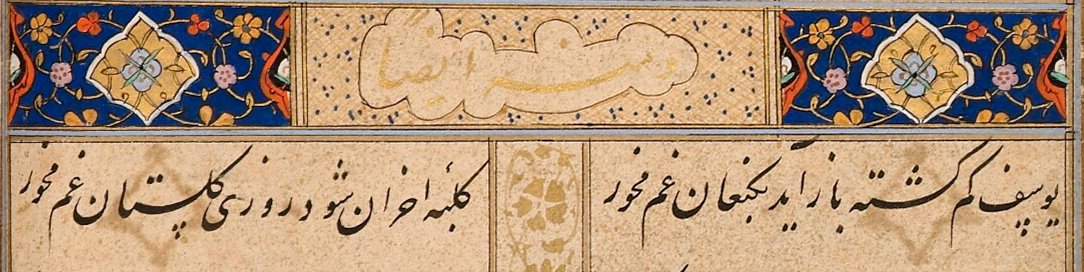 وله ایضا
یوسف گم گشته باز آید بکنعان غم مخور
کلبه احزان شود روزی گلستان غم مخور